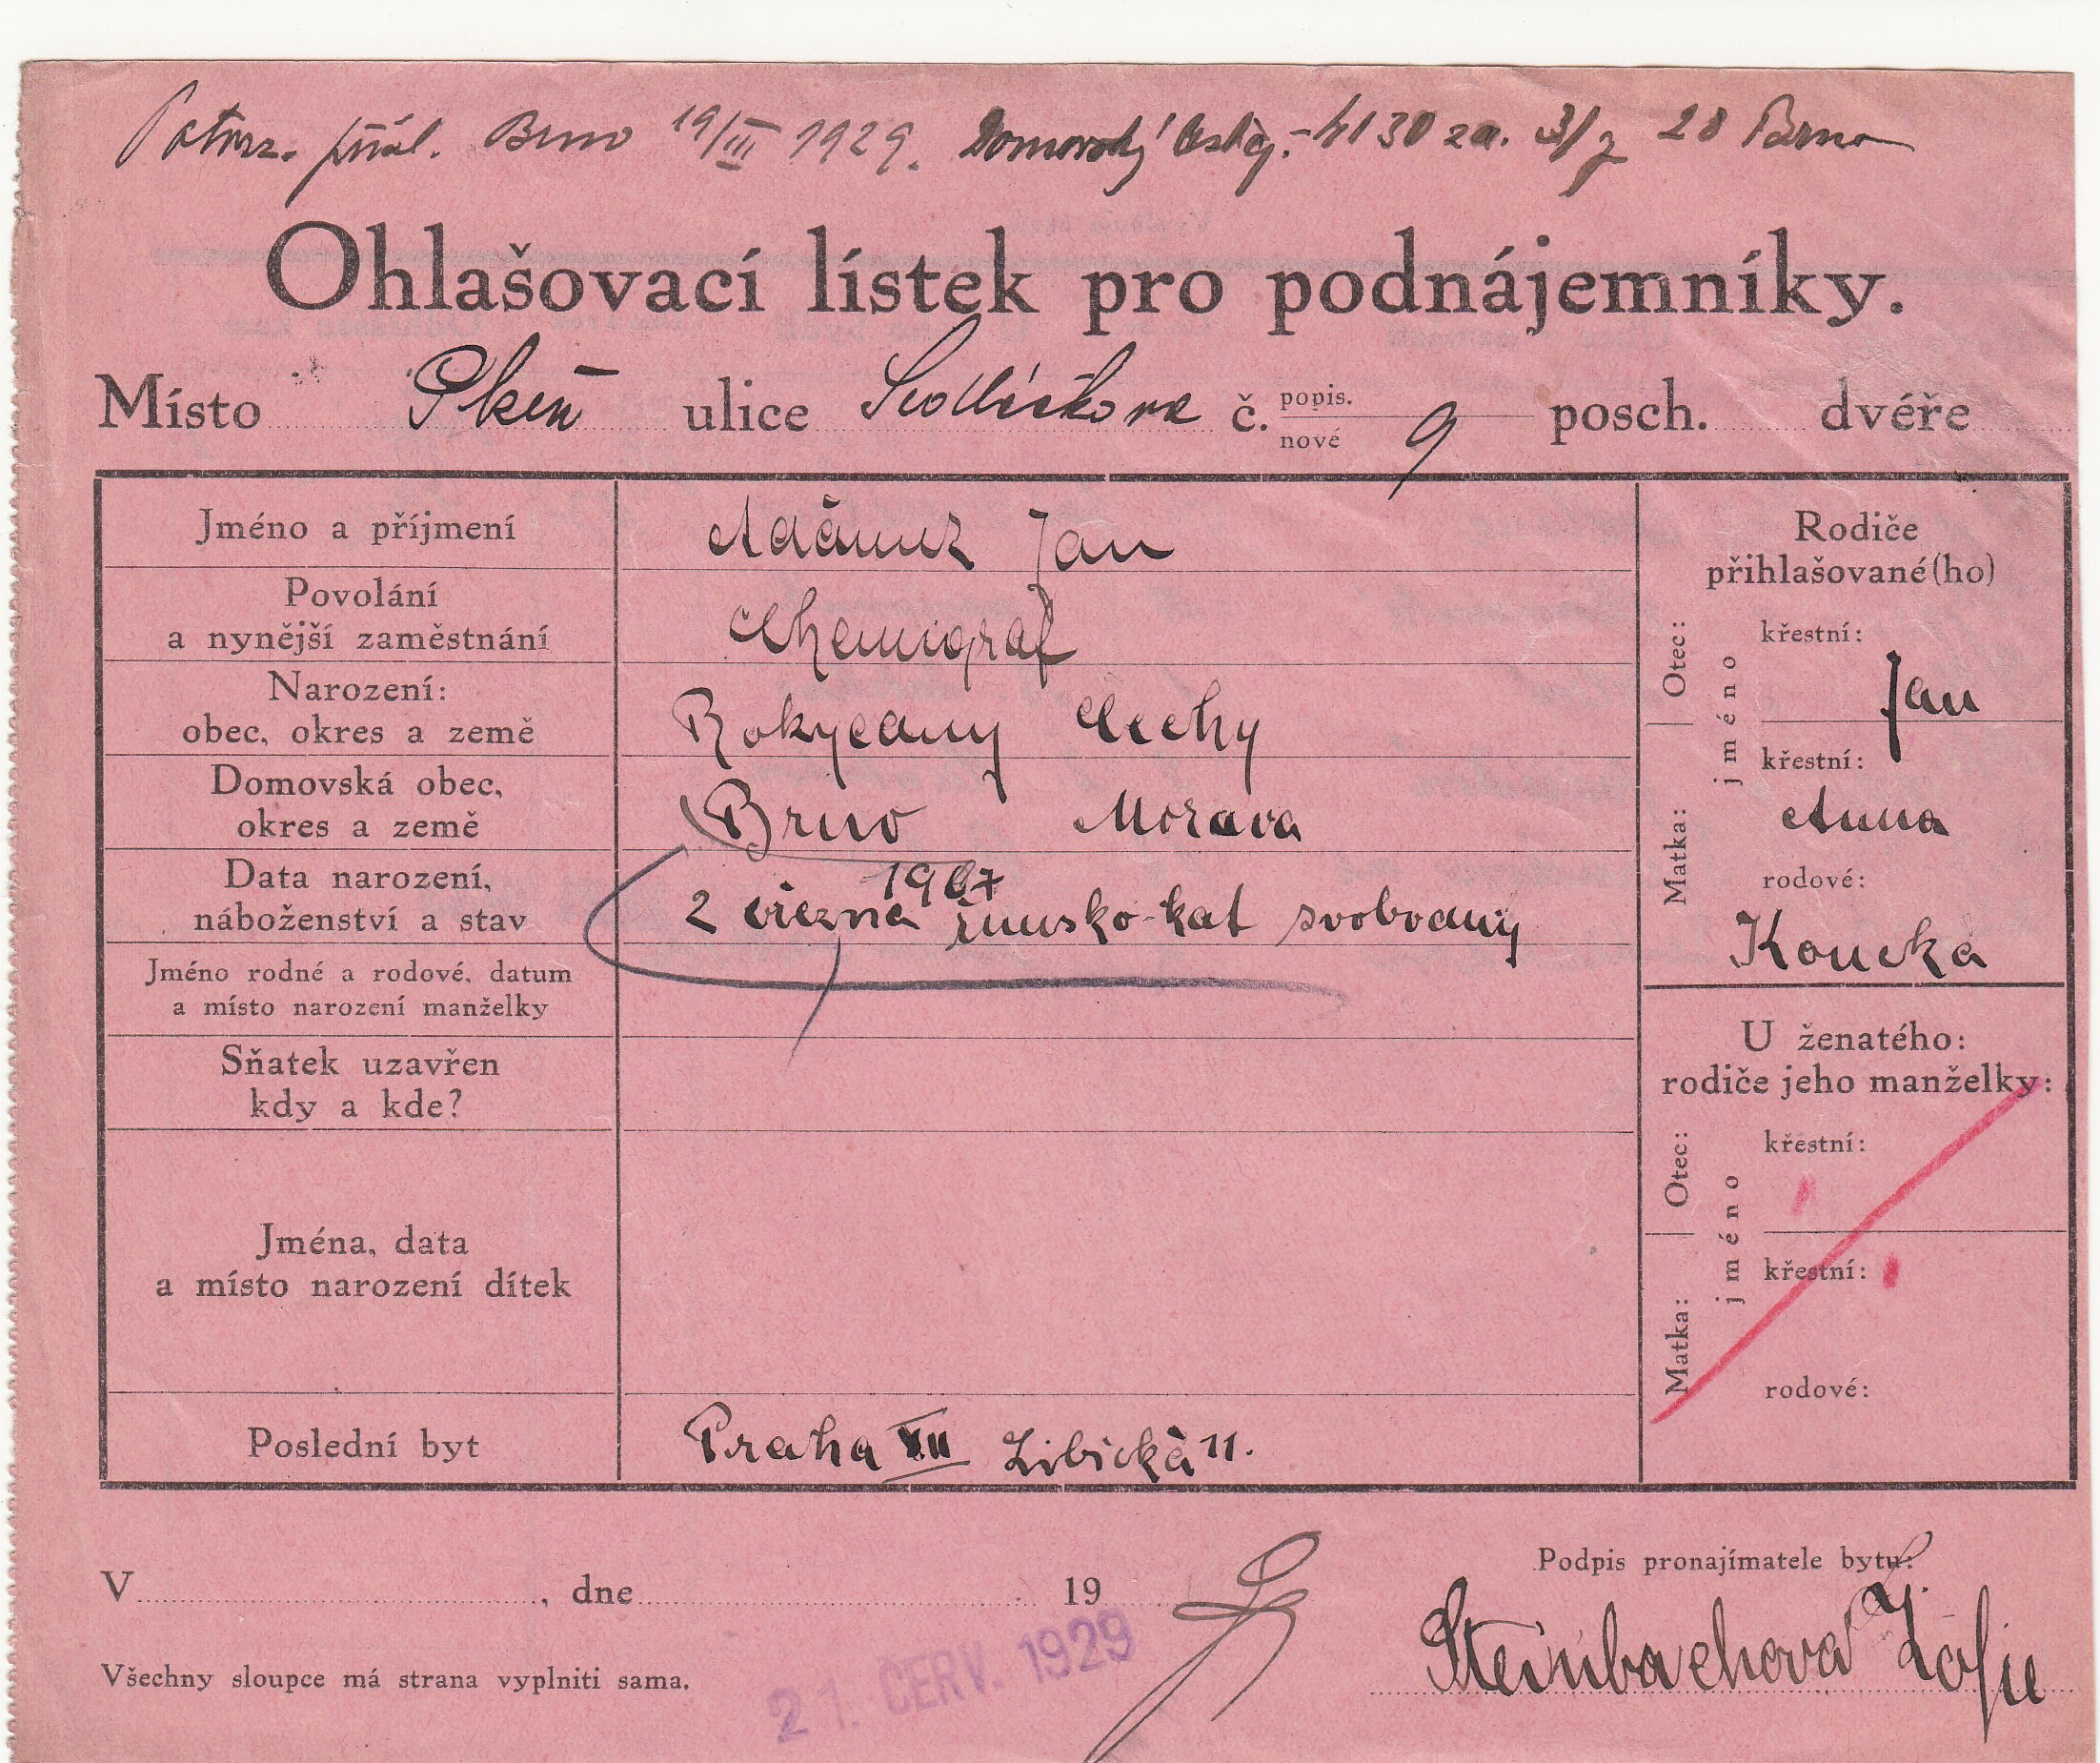 Potvrz. přísl. Brno 19/III 1929. Domovský list čj. 4130 za. 31/7 28 Brno
Ohlašovací lístek pro podnájemníky.
Místo Plzeň ulice Sedláčkova č. popis. nové 9 posch. dvéře
Jméno a příjmení Adámek Jan
Povolání
a nynější zaměstnání Chemigraf
Narození:
obec, okres a země Rokycany Čechy
Domovská obec,
okres a země Brno Morava
Data narození,
náboženství a stav 2 března 1907 římsko-kat svobodný
Jméno rodné a rodové, datum
a místo narození manželky
Sňatek uzavřen
kdy a kde?
Jména, data
a místo narození dítek
Poslední byt Praha XII Libická 11.
Rodiče
přihlašované(ho)
Otec:
jméno
křestní:
Jan
Matka:
křestní:
Anna
rodové:
Koucká
U ženatého:
rodiče jeho manželky:
Otec:
jméno
křestní:
Matka:
křestní:
rodové:
V , dne 19
21. ČERV. 1929
Podpis pronajímatele bytu:
Steinbachova Žofie
Všechny sloupce má strana vyplniti sama.